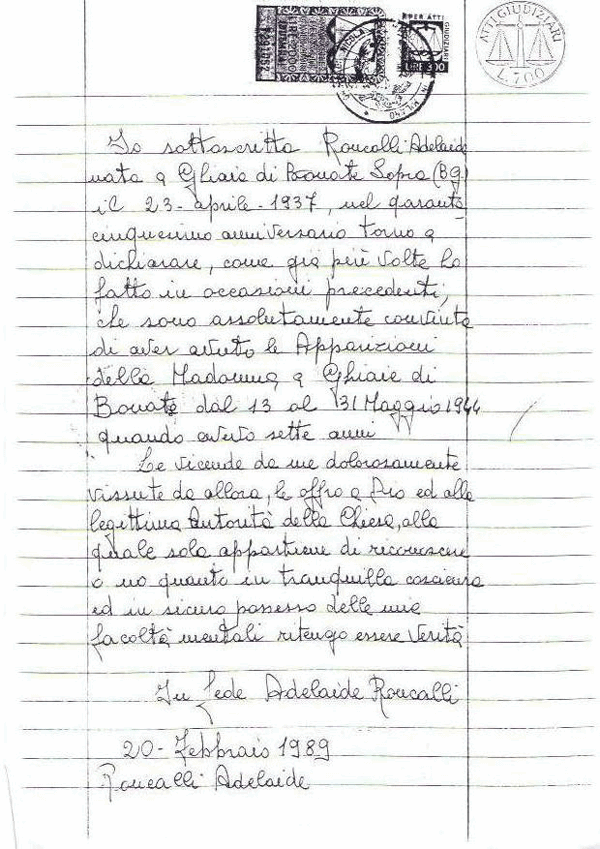 PER ATTI GIUDIZIARI
LIRE 300
ATTI GIUDIZIARI
L.700
MILANO
Io sottoscritta Roncalli Adelaide
nata a Ghiaie di Bonate Sopra (BG)
il 23-aprile-1937, nel quaranta
cinquesimo anniversario torno a
dichiarare, come già più volte ho
fatto in occasioni precedenti,
che sono assolutamente convinta
di aver avuto le Apparizioni
della Madonna a Ghiaie di
Bonate dal 13 al 31 Maggio 1944
quando avevo sette anni
Le vicende da me dolorosamente
vissute da allora, le offro a Dio ed alla
legittima Autorità della Chiesa, alla
quale sola appartiene di riconoscere
o no quanto in tranquilla coscienza
ed in sicuro possesso delle mie
facoltà mentali ritengo essere Verità
In fede Adelaide Roncalli
20-Febbraio 1989
Roncalli Adelaide